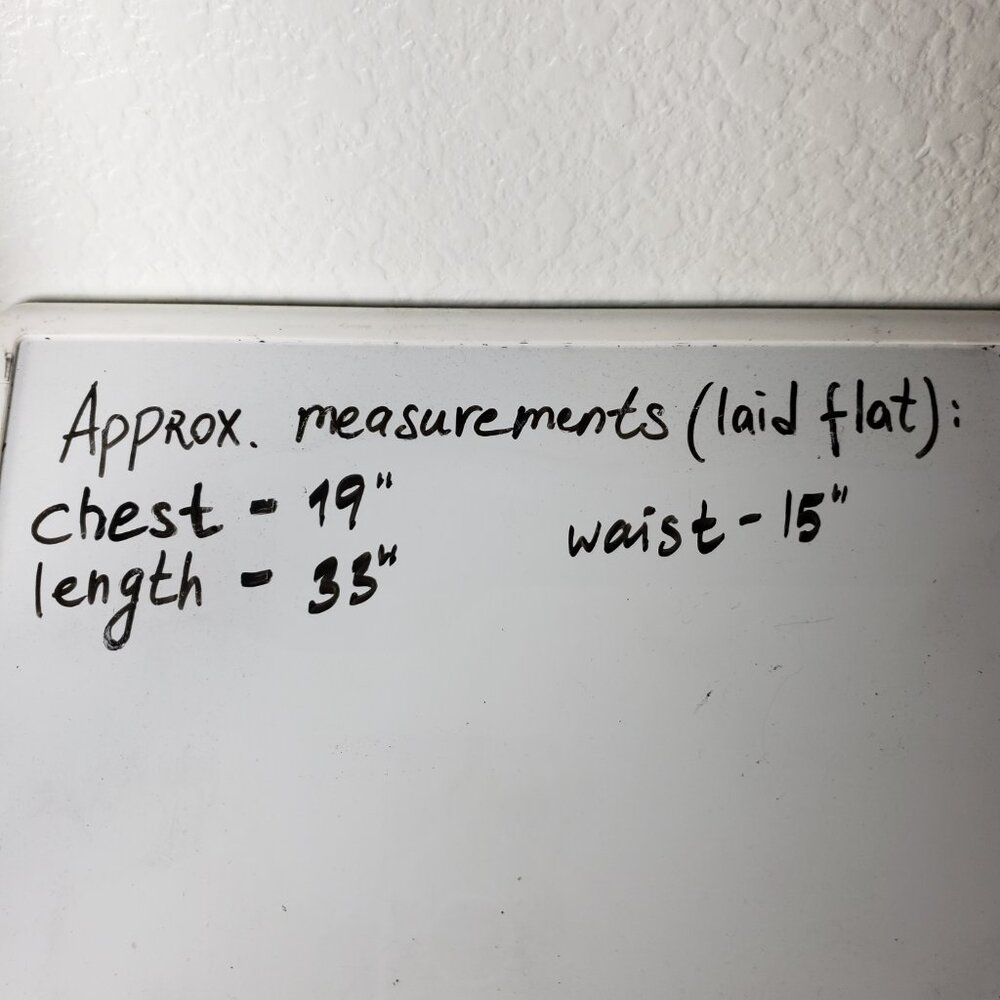 Approx. measurements (laid flat):
chest - 19" waist - 15"
length - 33"